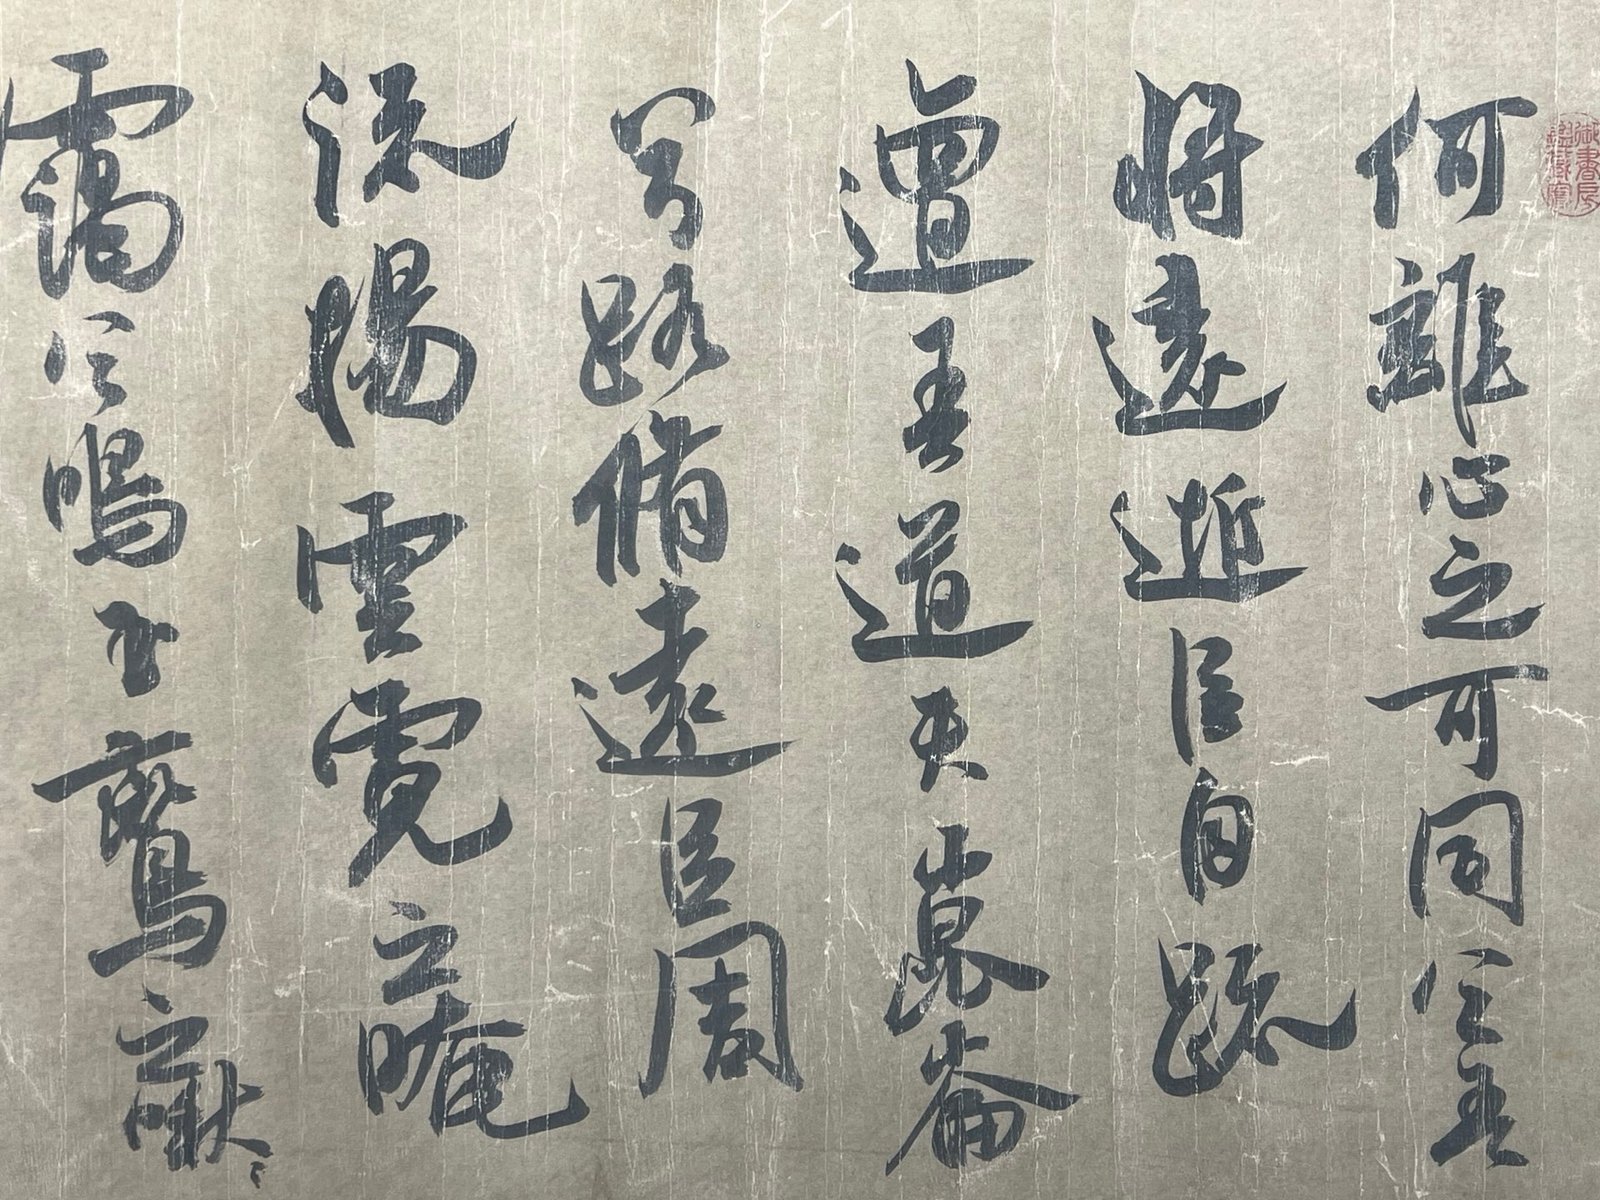 御書房鑑藏寶
何離心之可同兮吾
將遠逝以自疏
邅吾道夫崑崙
兮路脩遠以周
流揚雲霓之晻
靄兮鳴玉鸞之啾〻